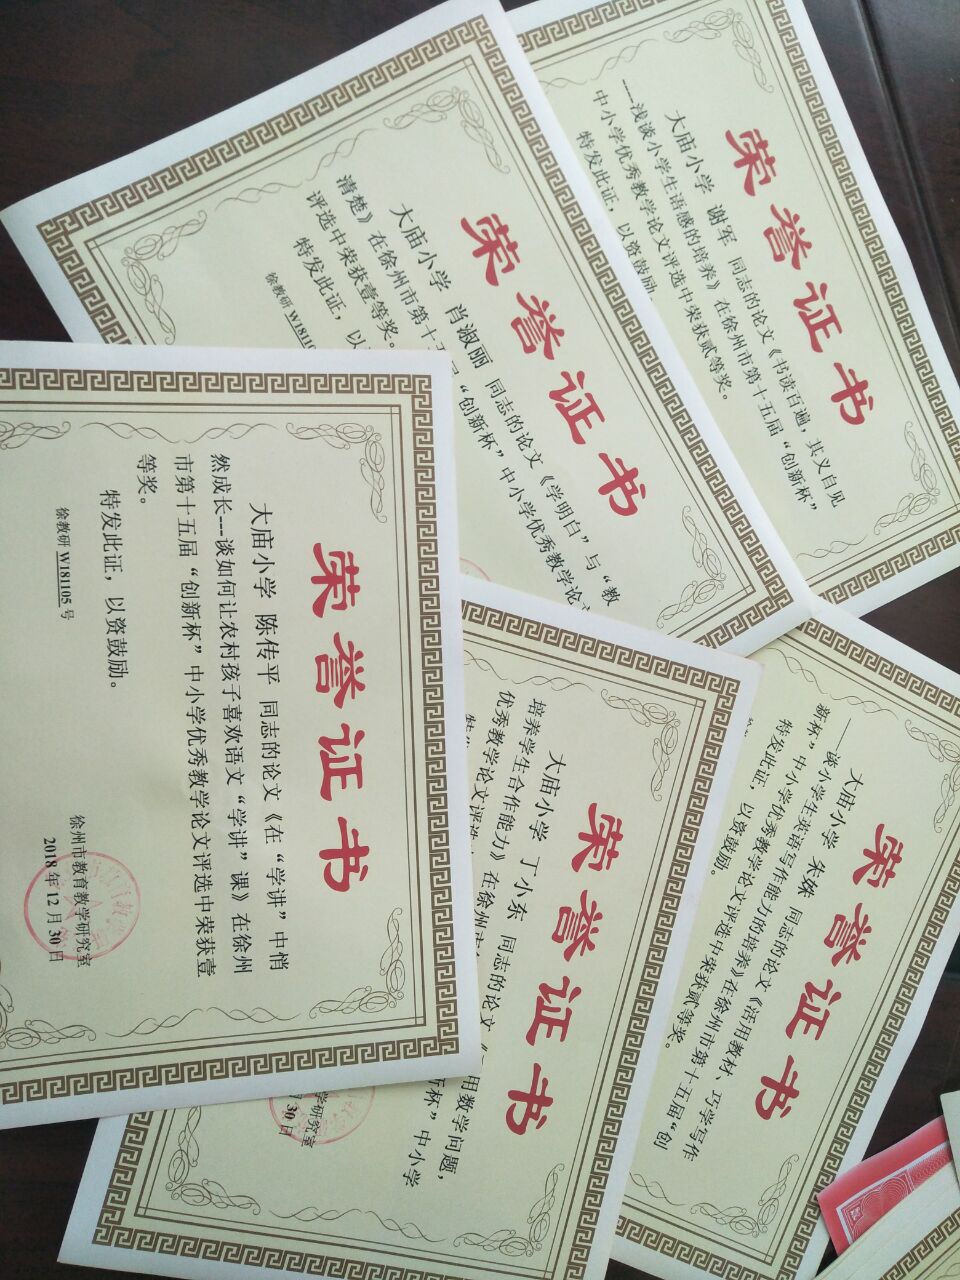 荣誉证书
大庙小学 谢军 同志的论文《书读百遍，其义自见
----浅谈小学生语感的培养》在徐州市第十五届“创新杯”
中小学优秀教学论文评选中荣获贰等奖。
特发此证，以资鼓励。
荣誉证书
大庙小学 肖淑丽 同志的论文《“学明白”与“教
清楚》在徐州市第十五届“创新杯”中小学优秀教学论文
评选中荣获壹等奖。
特发此证，以
徐教研 W1811
荣誉证书
大庙小学 陈传平 同志的论文《在“学讲”中悄
然成长---谈如何让农村孩子喜欢语文“学讲”课》在徐州
市第十五届“创新杯”中小学优秀教学论文评选中荣获壹
等奖。
特发此证，以资鼓励。
徐教研 W181105 号
徐州市教育教学研究室
2018 年 12 月 30 日
荣誉证书
大庙小学 丁小东 同志的论文《
用数学问题，
培养学生合作能力》在徐州市
新杯”中小学
优秀教学论文评选
学研究室
30 日
荣誉证书
大庙小学 朱姝 同志的论文《活用教材、巧学写作
——谈小学生英语写作能力的培养》在徐州市第十五届“创
新杯”中小学优秀教学论文评选中荣获贰等奖。
特发此证，以资鼓励。